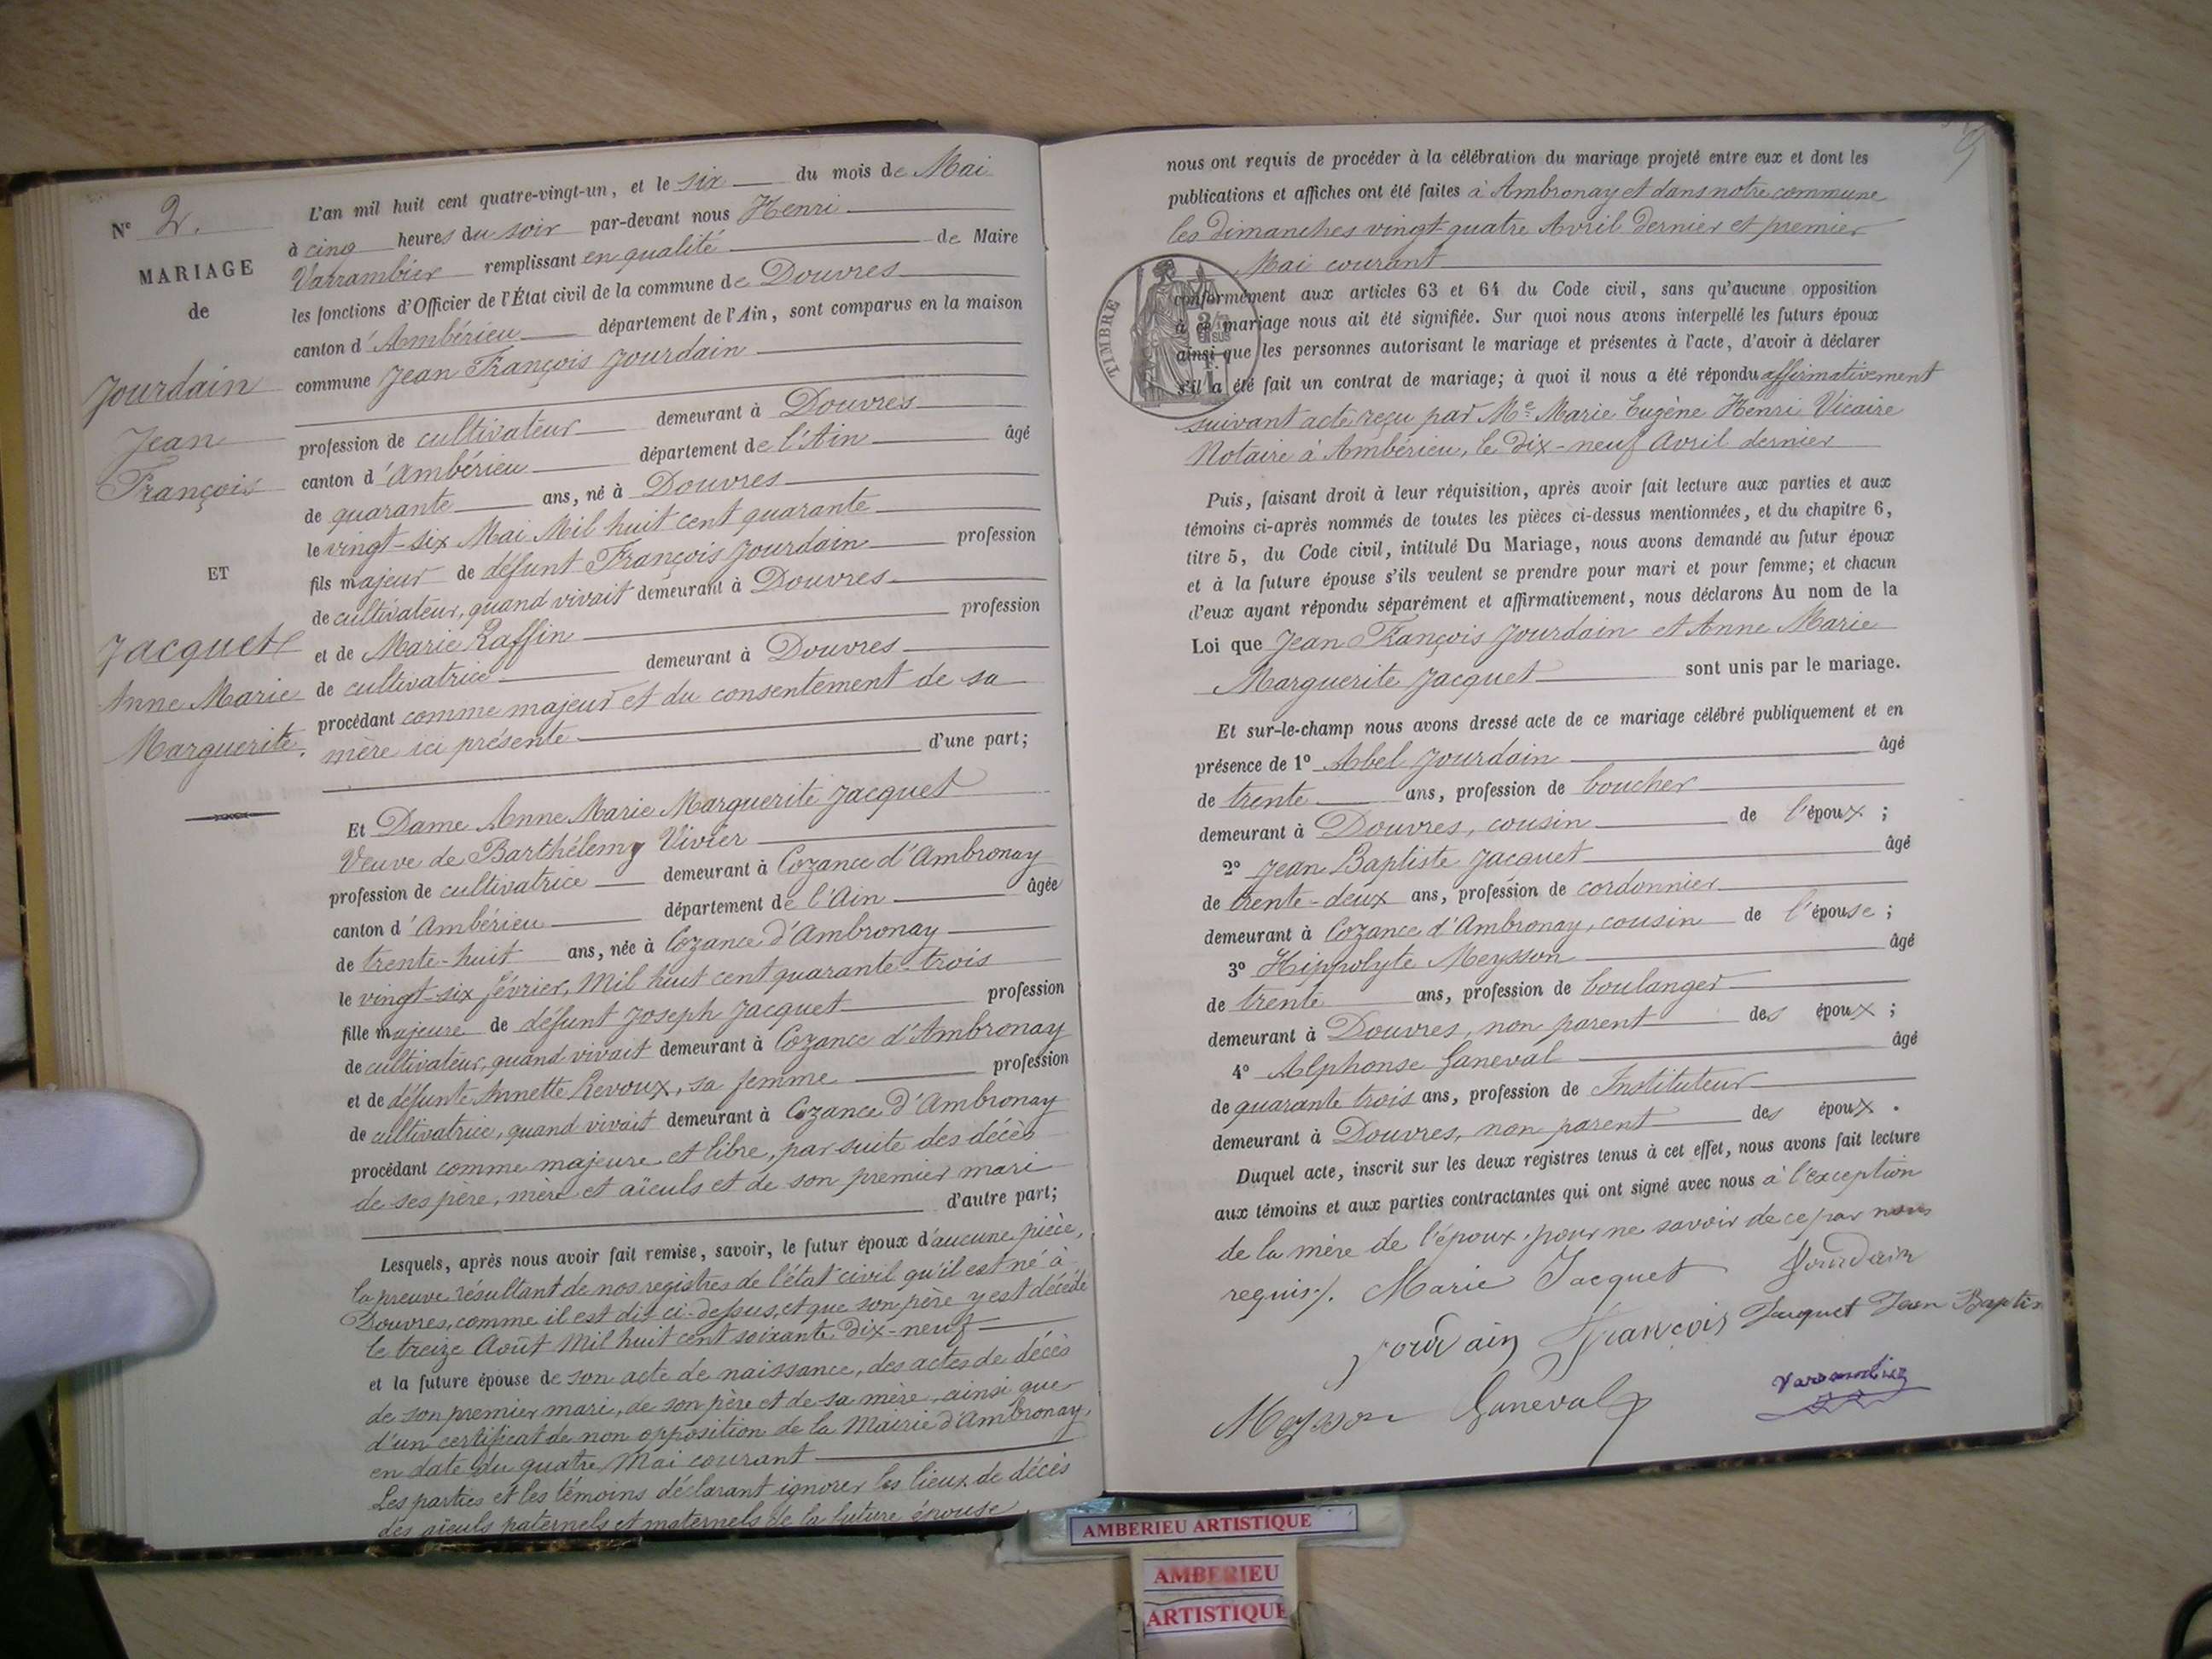 Nº 2.
MARIAGE
de
Jourdain
Jean
François
ET
Jacquet
Anne Marie
Marguerite.
L'an mil huit cent quatre-vingt-un, et le six du mois de Mai
à cinq heures du soir par-devant nous Henri
Varrambier remplissant en qualité de Maire
les fonctions d'Officier de l'État civil de la commune de Douvres
canton d'Ambérieu département de l'Ain, sont comparus en la maison
commune Jean François Jourdain
profession de cultivateur demeurant à Douvres
canton d'Ambérieu département de l'Ain âgé
de quarante ans, né à Douvres
le vingt-six Mai Mil huit cent quarante
fils majeur de défunt François Jourdain profession
de cultivateur, quand vivait demeurant à Douvres
et de Marie Raffin profession
de cultivatrice demeurant à Douvres
procédant comme majeur et du consentement de sa
mère ici présente d'une part;
Et Dame Anne Marie Marguerite Jacquet
Veuve de Barthélemy Vivier
profession de cultivatrice demeurant à Cozance d'Ambronay
canton d'Ambérieu département de l'Ain âgée
de trente-huit ans, née à Cozance d'Ambronay
le vingt-six février, Mil huit cent quarante-trois
fille majeure de défunt Joseph Jacquet profession
de cultivateur, quand vivait demeurant à Cozance d'Ambronay
et de défunte Annette Revoux, sa femme profession
de cultivatrice, quand vivait demeurant à Cozance d'Ambronay
procédant comme majeure et libre, par suite des décès
de ses père, mère et aïeuls et de son premier mari
d'autre part;
Lesquels, après nous avoir fait remise, savoir, le futur époux d'aucune pièce,
la preuve résultant de nos registres de l'état civil qu'il est né à
Douvres, comme il est dit ci-dessus, et que son père y est décédé
le treize Août Mil huit cent soixante dix-neuf
et la future épouse de son acte de naissance, des actes de décès
de son premier mari, de son père et de sa mère, ainsi que
d'un certificat de non opposition de la Mairie d'Ambronay,
en date du quatre Mai courant
Les parties et les témoins déclarant ignorer les lieux de décès
des aïeuls paternels et maternels de la future épouse
nous ont requis de procéder à la célébration du mariage projeté entre eux et dont les
publications et affiches ont été faites à Ambronay et dans notre commune
les dimanches vingt quatre Avril dernier et premier
Mai courant
TIMBRE
conformément aux articles 63 et 64 du Code civil, sans qu'aucune opposition
à ce mariage nous ait été signifiée. Sur quoi nous avons interpellé les futurs époux
ainsi que les personnes autorisant le mariage et présentes à l'acte, d'avoir à déclarer
s'il a été fait un contrat de mariage; à quoi il nous a été répondu affirmativement
suivant acte reçu par Me Marie Eugène Henri Vicaire
Notaire à Ambérieu, le dix-neuf Avril dernier
Puis, faisant droit à leur réquisition, après avoir fait lecture aux parties et aux
témoins ci-après nommés de toutes les pièces ci-dessus mentionnées, et du chapitre 6,
titre 5, du Code civil, intitulé Du Mariage, nous avons demandé au futur époux
et à la future épouse s'ils veulent se prendre pour mari et pour femme; et chacun
d'eux ayant répondu séparément et affirmativement, nous déclarons Au nom de la
Loi que Jean François Jourdain et Anne Marie
Marguerite Jacquet sont unis par le mariage.
Et sur-le-champ nous avons dressé acte de ce mariage célébré publiquement et en
présence de 1º Abel Jourdain âgé
de trente ans, profession de boucher
demeurant à Douvres, cousin de l'époux ;
2º Jean Baptiste Jacquet âgé
de trente-deux ans, profession de cordonnier
demeurant à Cozance d'Ambronay, cousin de l'épouse ;
3º Hippolyte Meysson âgé
de trente ans, profession de boulanger
demeurant à Douvres, non parent des époux ;
4º Alphonse Ganeval âgé
de quarante trois ans, profession de Instituteur
demeurant à Douvres, non parent des époux .
Duquel acte, inscrit sur les deux registres tenus à cet effet, nous avons fait lecture
aux témoins et aux parties contractantes qui ont signé avec nous à l'exception
de la mère de l'époux, pour ne savoir de ce par nous
requis/. Marie Jacquet Jourdain
Jourdain François Jacquet Jean Baptis
Meysson Ganeval Varrambier
AMBERIEU ARTISTIQUE
AMBERIEU
ARTISTIQUE